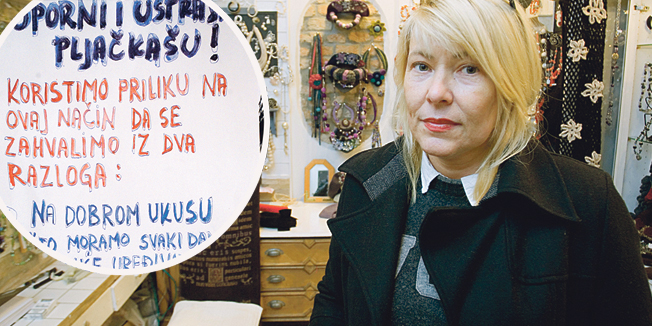 UPORNI I USTRAJNI
PLJAČKAŠU!
KORISTIMO PRILIKU NA
OVAJ NAČIN DA SE
ZAHVALIMO IZ DVA
RAZLOGA:
NA DOBROM UKUSU
MORAMO SVAKI DAN